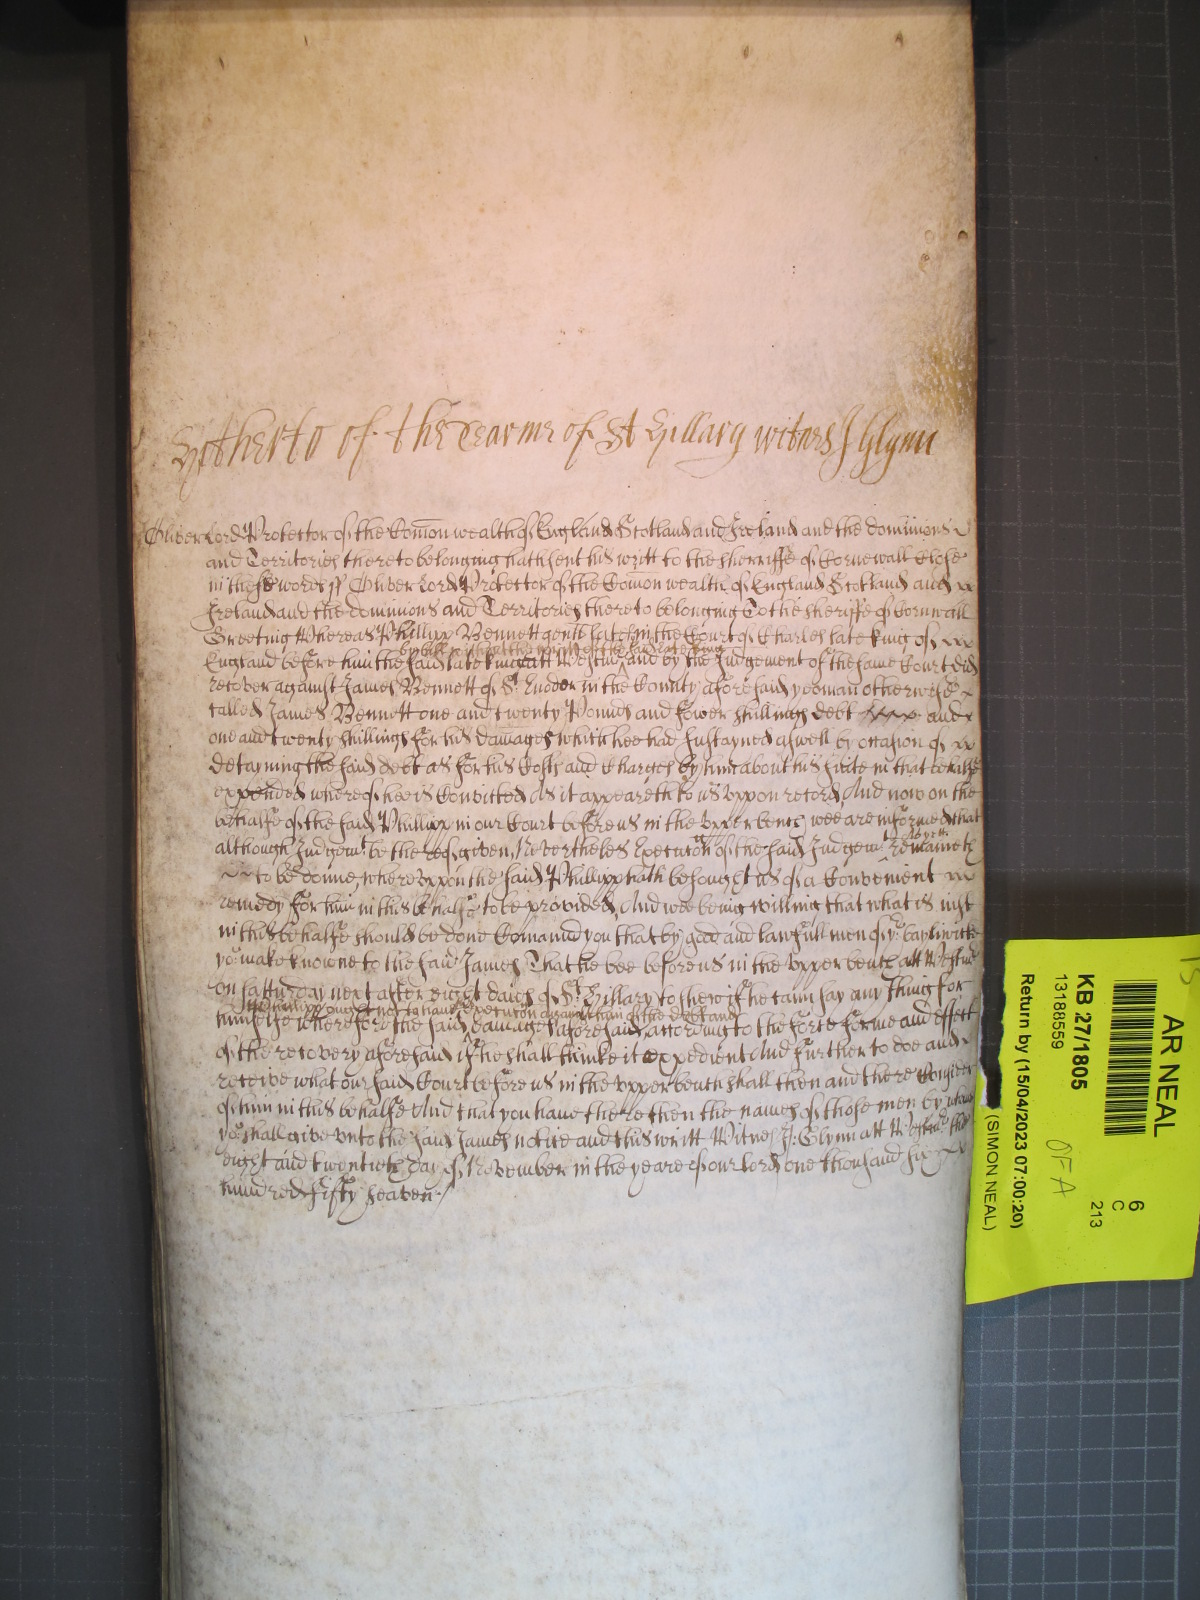 Hitherto of the Tearme of St Hillary witnes J Glynn
Oliver Lord Protector of the Com̄on wealth of England Scotland and Ireland and the dominions
and Territories thereto belonging hath sent his writt to the sherriffe of Cornewall Close
in these words ss Oliver Lord Protector of the Com̄on wealth of England Scotland and
Ireland and the dominions and Territories thereto belonging To the sheriffe of Cornwall
Greeting Whereas Phillipp Bennett gent lately in the Court of Charles late king of
by bill without the writt of the said late king
England before him the said late king att Westmr and by the Judgement of the same Court did
recover against James Bennett of St Tudder in the County aforesaid yeoman otherwise
called James Bennett one and twenty Pounds and fower shillings debt and
one and twenty shillings for his damages which hee had sustayned aswell by occasion of
detayning the said debt as for his Costs and Charges by him about his suite in that behalfe
expended whereof hee is Convicted As it appeareth to us uppon record And now on the
behalfe of the said Phillipp in our Court before us in the upper bench wee are informed that
although Judgemt be thereof given, Nevertheles Execucon of the said Judgemt remaineth
to be donne, whereuppon the said Phillipp hath besought us of a Convenient
remedy for him in this behalfe to be provided, And wee being willing that what is just
in this behalfe should be done Comand you that by good and lawfull men of yor bayliwicke
you make knowne to the said James That he bee before us in the upper bench att Westmr
on satturday next after eight daies of St Hillary to shew if he cann say any thing for
Phillipp ought not to have Execution against him of the debt and
himselfe wherefore the said damages aforesaid according to the force forme and effect
of the recovery aforesaid if he shall thinke it expedient And further to doe and
receive what our said Court before us in the upper bench shall then and there Consider
of him in this behalfe And that you have there then the names of those men by whom
you shall give unto the said James notice and this writt Witnes J: Glynn att Westmr the
eight and twentieth day of November in the yeare of our Lord one thousand six
hundred fifty seaven
AR NEAL
KB 27/1805
13188559
Return by (15/04/2023 07:00:20)
(SIMON NEAL)
6
C
213
OFA